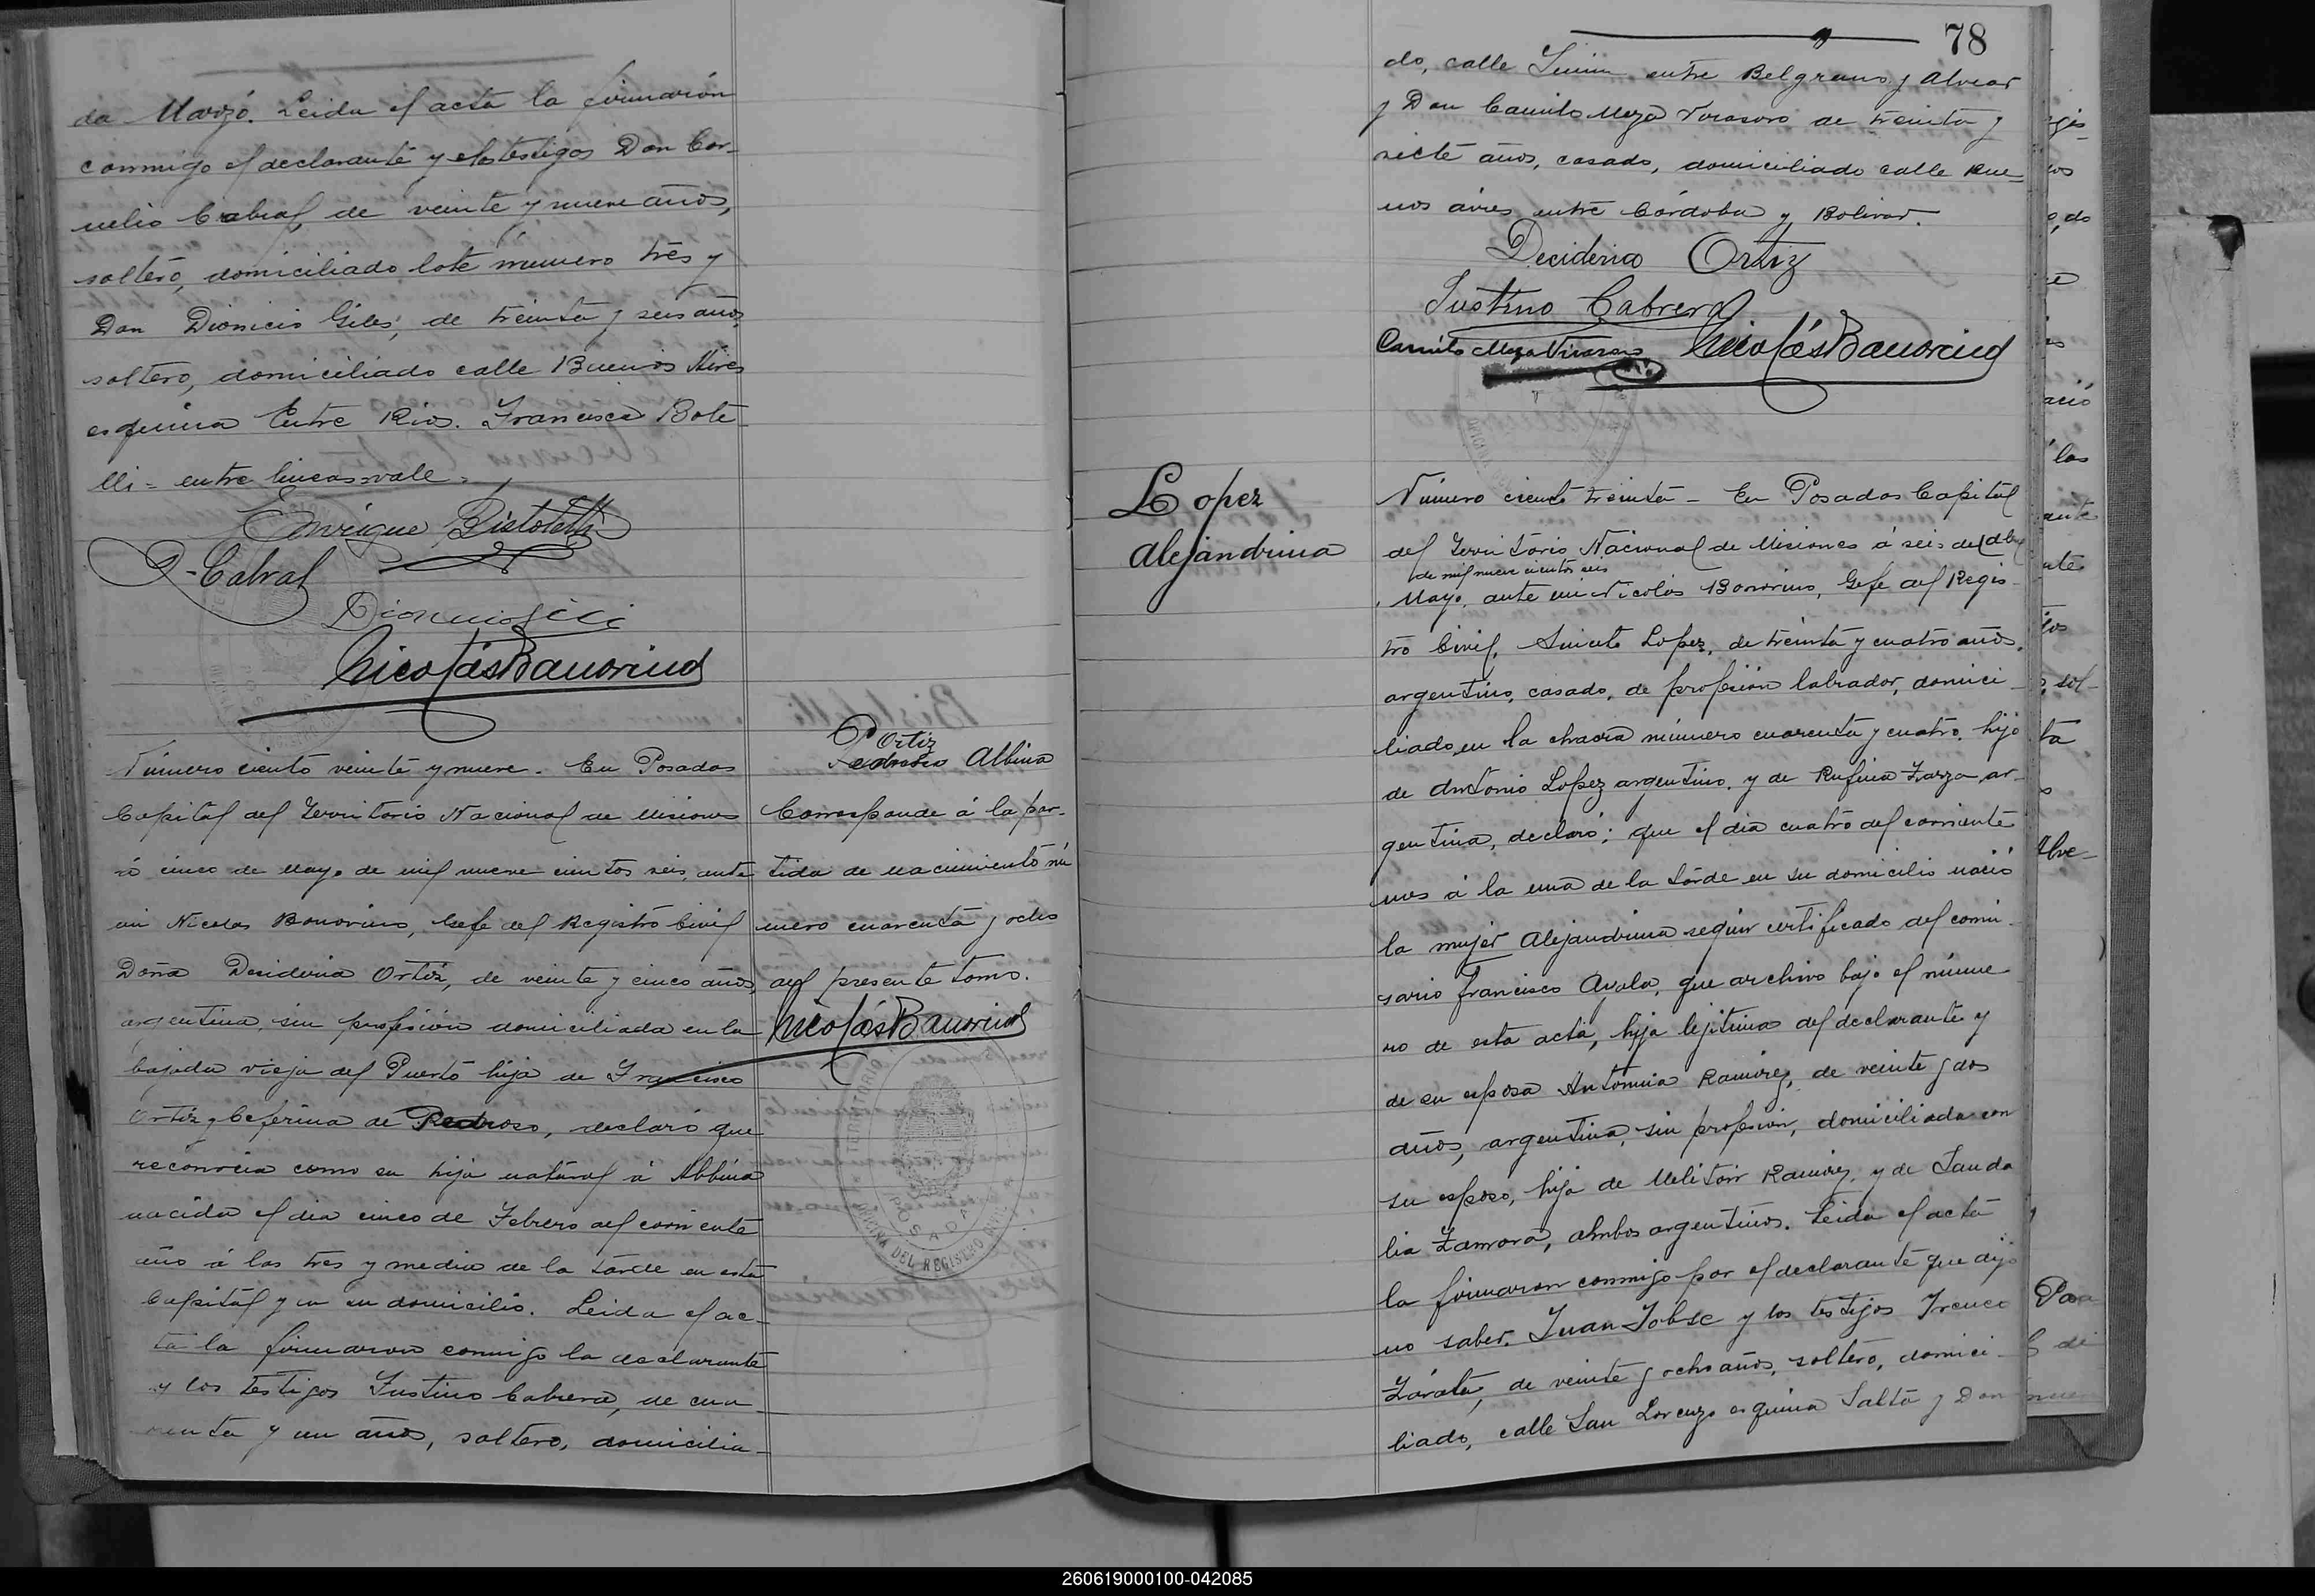 da Marzó. Leida el acta la firmarón
conmigo el declarante y los testigos Don Cor-
nelio Cabral, de veinte y nueve años,
soltero, domiciliado lote número tres y
Don Dionicio Giles, de treinta y seis años
soltero, domiciliado calle Buenos Aires
esquina Entre Rios. Francisca Bote-
lli = entre lineas vale.
Enrique Bistoletti
Cabral
Nicolás Bonorino
Número ciento veinte y nueve. En Posadas
Capital del Territorio Nacional de Misiones
á cinco de Mayo de mil nueve cientos seis, ante
mi Nicolas Bonorino, Gefe del Registro Civil
Doña Desideria Ortiz, de veinte y cinco años,
argentina, sin profesión domiciliada en la
bajada vieja del Puerto hija de Francisco
Ortiz y Ceferina de Pedroso, declaró que
reconocia como su hija natural á Albina
nacida el dia cinco de Febrero del corriente
año á las tres y media de la tarde en esta
Capital y en su domicilio. Leida el ac-
ta la firmaron conmigo la declarante
y los testigos Justino Cabrera, de cua-
renta y un años, soltero, domicilia-
Ortiz
Pedroso Albina
Corresponde á la par-
tida de nacimiento nú
mero cuarenta y ocho
del presente tomo.
Nicolás Bonorino
TERRITORIO
POSADAS
OFICINA DEL REGISTRO CIVIL
78
do, calle Junin entre Belgrano y Alvear
y Don Camilo Meza Virasoro de treinta y
siete años, casado, domiciliado calle Bue-
nos aires entre Córdoba y Bolivar.
Decideria Ortiz
Justino Cabrera
Camilo Meza Virasoro Nicolás Bonorino
Lopez
Alejandrina
Número ciento treinta - En Posadas Capital
del Territorio Nacional de Misiones á seis de
de mil nueve cientos seis
Mayo, ante mi Nicolás Bonorino, Gefe del Regis-
tro Civil, Lopez, de treinta y cuatro años,
argentino, casado, de profesión labrador, domici-
liado, en la chacra número cuarenta y cuatro, hijo
de Antonio Lopez argentino, y de Rufina Zarza ar-
gentina, declaró; que el dia cuatro del corriente
mes á la una de la tarde en su domicilio nació
la mujer Alejandrina según certificado del comi-
sario Francisco Avalo, que archivo bajo el núme-
ro de esta acta, hija lejitima del declarante y
de su esposa Antonia Ramirez, de veinte y dos
años, argentina, sin profesión, domiciliada con
su esposo, hija de Melitón Ramirez, y de Sanda-
lia Zamora, ambos argentinos. Leida el acta
la firmaron conmigo por el declarante que dijo
no saber, Juan Jobse y los testigos Irenee
Zárate, de veinte y ocho años, soltero, domici-
liado, calle San Lorenzo esquina Salta y Don
260619000100-042085